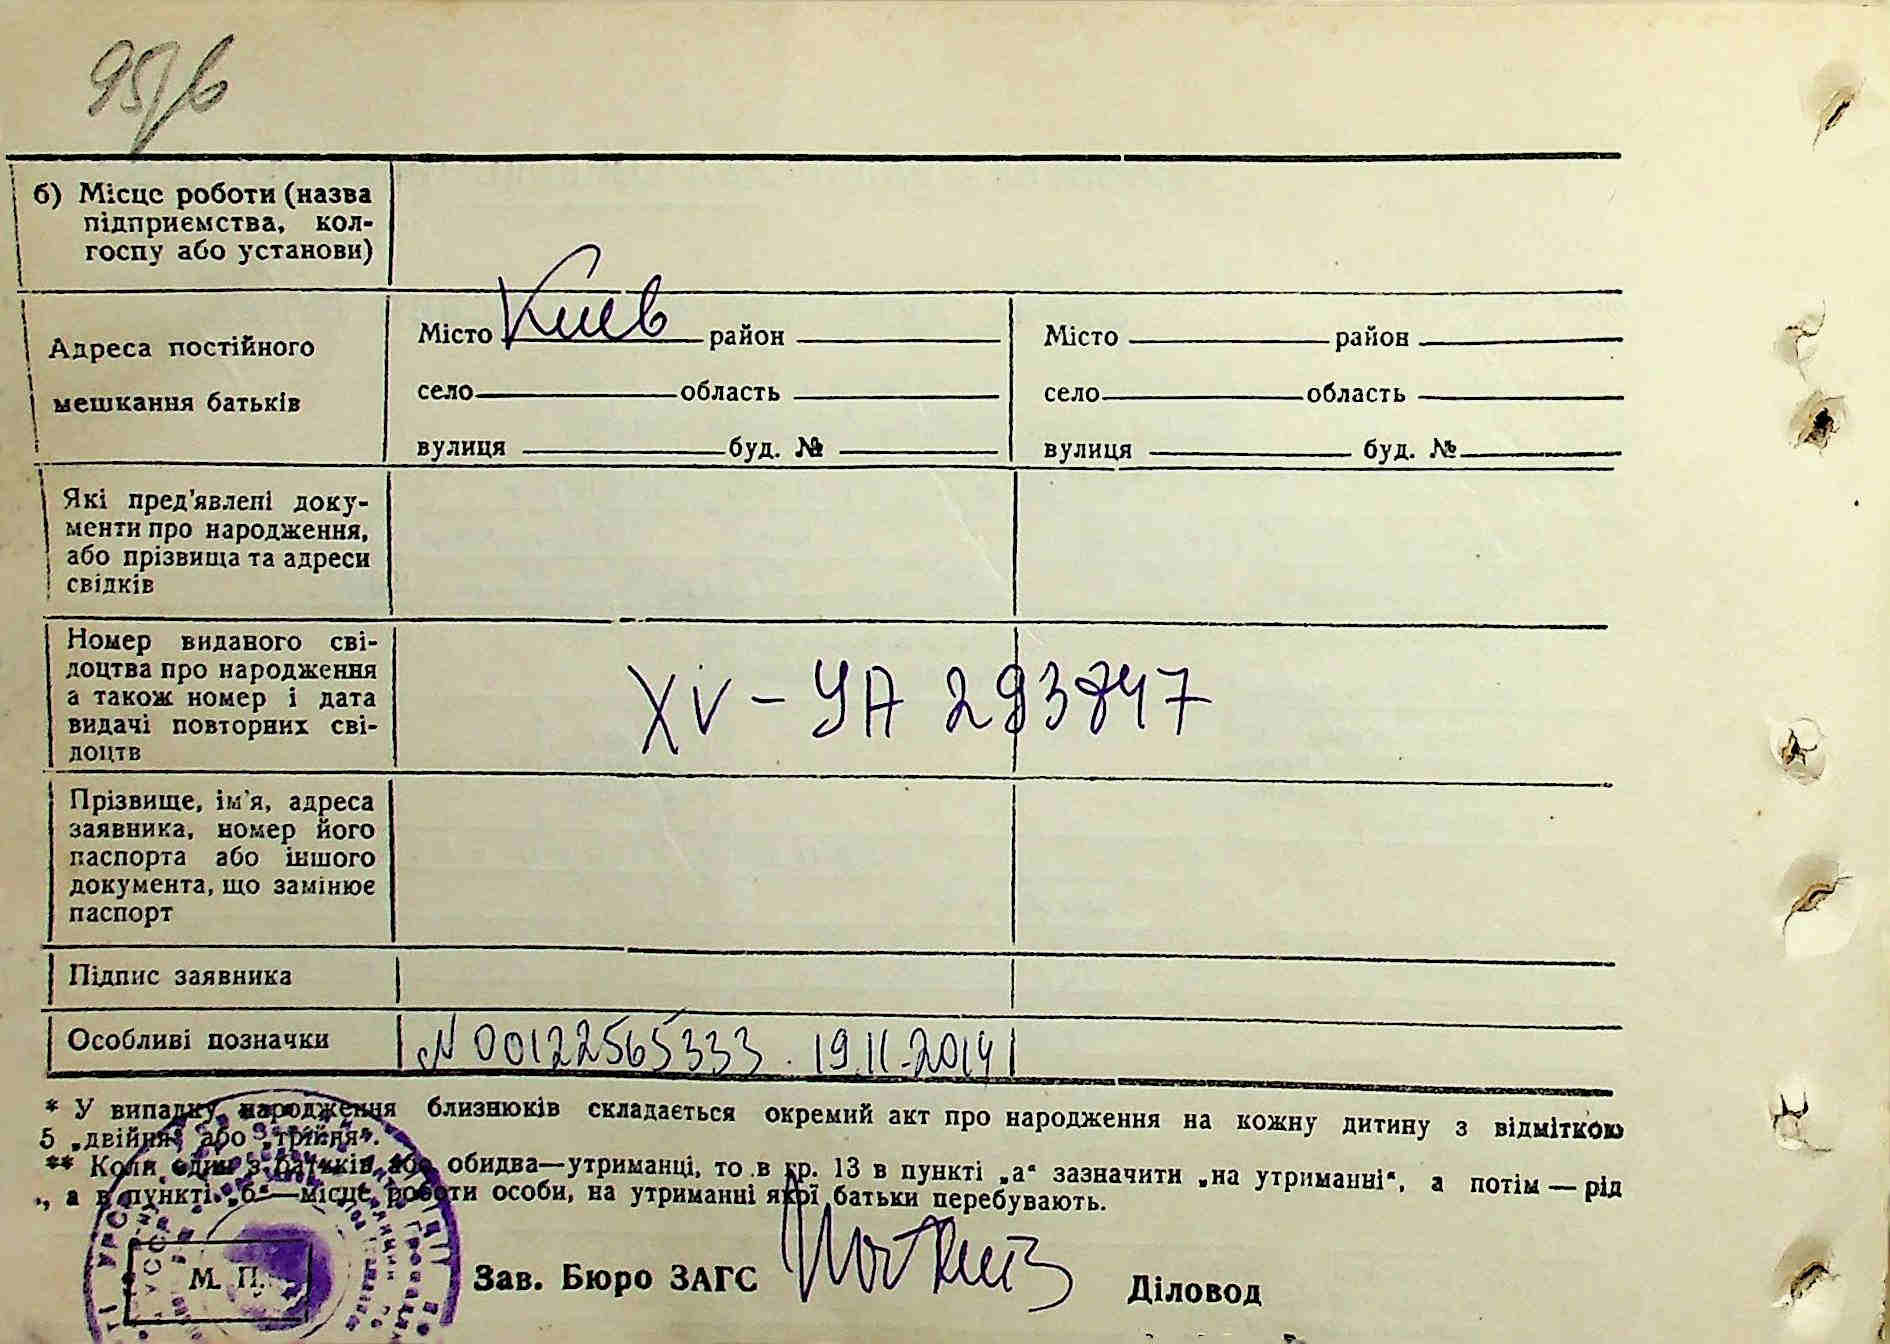 95/6
б) Місце роботи (назва
підприємства, кол-
госпу або установи)
Адреса постійного
мешкання батьків
Місто Киев район
село область
вулиця буд. №
Місто район
село область
вулиця буд. №
Які пред'явлені доку-
менти про народження,
або прізвища та адреси
свідків
Номер виданого сві-
доцтва про народження
а також номер і дата
видачі повторних сві-
доцтв
XV - УА 293847
Прізвище, ім'я, адреса
заявника, номер його
паспорта або іншого
документа, що замінює
паспорт
Підпис заявника
Особливі позначки
N 00122565333. 19.11.2014
* У випадку народження близнюків складається окремий акт про народження на кожну дитину з відміткою
5 „двійня" або „трійня".
** Коли один з батьків або обидва—утриманці, то в гр. 13 в пункті „а" зазначити „на утриманні", а потім — рід
., а в пункті „б"—місце роботи особи, на утриманні якої батьки перебувають.
М. П.
Зав. Бюро ЗАГС
Діловод